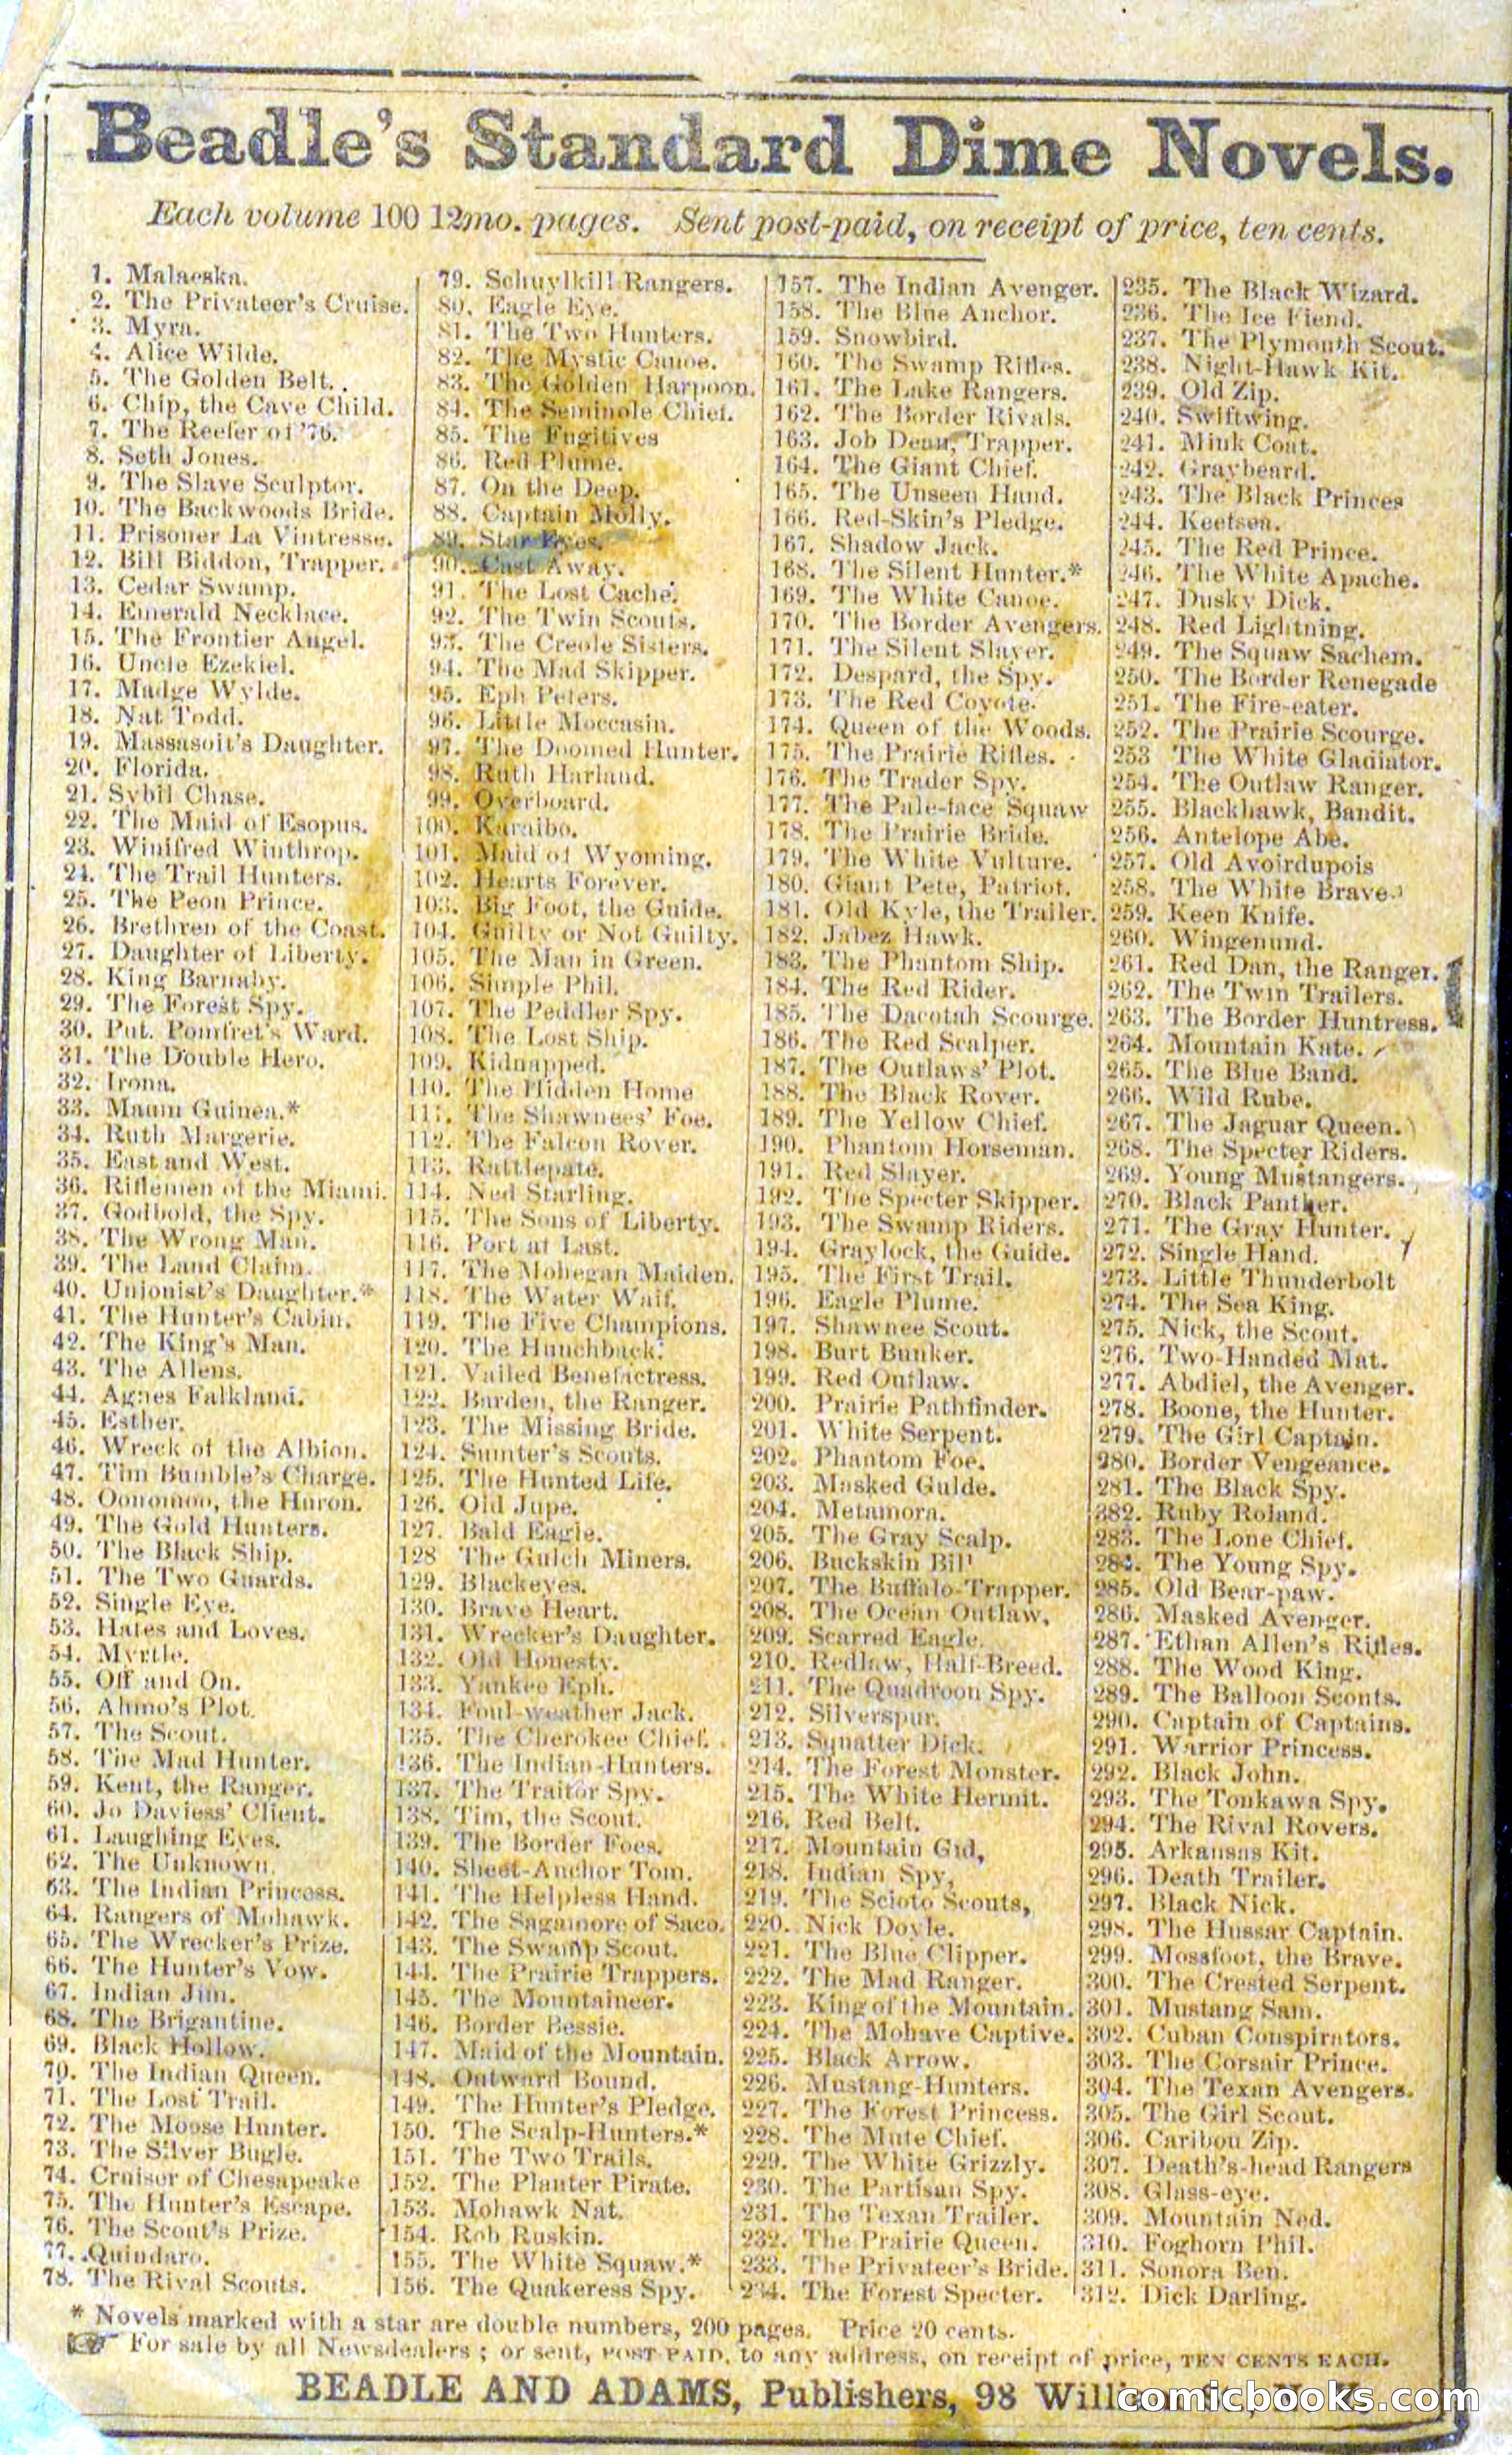 Beadle's Standard Dime Novels.
Each volume 100 12mo. pages. Sent post-paid, on receipt of price, ten cents.
1. Malaeska.
2. The Privateer's Cruise.
3. Myra.
4. Alice Wilde.
5. The Golden Belt.
6. Chip, the Cave Child.
7. The Reefer of '76.
8. Seth Jones.
9. The Slave Sculptor.
10. The Backwoods Bride.
11. Prisoner La Vintresse.
12. Bill Biddon, Trapper.
13. Cedar Swamp.
14. Emerald Necklace.
15. The Frontier Angel.
16. Uncle Ezekiel.
17. Madge Wylde.
18. Nat Todd.
19. Massasoit's Daughter.
20. Florida.
21. Sybil Chase.
22. The Maid of Esopus.
23. Winifred Winthrop.
24. The Trail Hunters.
25. The Peon Prince.
26. Brethren of the Coast.
27. Daughter of Liberty.
28. King Barnaby.
29. The Forest Spy.
30. Put. Pomfret's Ward.
31. The Double Hero.
32. Irona.
33. Maum Guinea.*
34. Ruth Margerie.
35. East and West.
36. Riflemen of the Miami.
37. Godbold, the Spy.
38. The Wrong Man.
39. The Land Claim.
40. Unionist's Daughter.*
41. The Hunter's Cabin.
42. The King's Man.
43. The Allens.
44. Agnes Falkland.
45. Esther.
46. Wreck of the Albion.
47. Tim Bumble's Charge.
48. Oonomoo, the Huron.
49. The Gold Hunters.
50. The Black Ship.
51. The Two Guards.
52. Single Eye.
53. Hates and Loves.
54. Myrtle.
55. Off and On.
56. Ahmo's Plot.
57. The Scout.
58. The Mad Hunter.
59. Kent, the Ranger.
60. Jo Daviess' Client.
61. Laughing Eyes.
62. The Unknown.
63. The Indian Princess.
64. Rangers of Mohawk.
65. The Wrecker's Prize.
66. The Hunter's Vow.
67. Indian Jim.
68. The Brigantine.
69. Black Hollow.
70. The Indian Queen.
71. The Lost Trail.
72. The Moose Hunter.
73. The Silver Bugle.
74. Cruiser of Chesapeake
75. The Hunter's Escape.
76. The Scout's Prize.
77. Quindaro.
78. The Rival Scouts.
79. Schuylkill Rangers.
80. Eagle Eye.
81. The Two Hunters.
82. The Mystic Canoe.
83. The Golden Harpoon.
84. The Seminole Chief.
85. The Fugitives
86. Red Plume.
87. On the Deep.
88. Captain Molly.
89. Star Eyes.
90. Cast Away.
91. The Lost Cache.
92. The Twin Scouts.
93. The Creole Sisters.
94. The Mad Skipper.
95. Eph Peters.
96. Little Moccasin.
97. The Doomed Hunter.
98. Ruth Harland.
99. Overboard.
100. Karaibo.
101. Maid of Wyoming.
102. Hearts Forever.
103. Big Foot, the Guide.
104. Guilty or Not Guilty.
105. The Man in Green.
106. Simple Phil.
107. The Peddler Spy.
108. The Lost Ship.
109. Kidnapped.
110. The Hidden Home
111. The Shawnees' Foe.
112. The Falcon Rover.
113. Rattlepate.
114. Ned Starling.
115. The Sons of Liberty.
116. Port at Last.
117. The Mohegan Maiden.
118. The Water Waif.
119. The Five Champions.
120. The Hunchback.
121. Vailed Benefactress.
122. Barden, the Ranger.
123. The Missing Bride.
124. Sumter's Scouts.
125. The Hunted Life.
126. Old Jupe.
127. Bald Eagle.
128 The Gulch Miners.
129. Blackeyes.
130. Brave Heart.
131. Wrecker's Daughter.
132. Old Honesty.
133. Yankee Eph.
134. Foul-weather Jack.
135. The Cherokee Chief.
136. The Indian-Hunters.
137. The Traitor Spy.
138. Tim, the Scout.
139. The Border Foes.
140. Sheet-Anchor Tom.
141. The Helpless Hand.
142. The Sagamore of Saco.
143. The Swamp Scout.
144. The Prairie Trappers.
145. The Mountaineer.
146. Border Bessie.
147. Maid of the Mountain.
148. Outward Bound.
149. The Hunter's Pledge.
150. The Scalp-Hunters.*
151. The Two Trails.
152. The Planter Pirate.
153. Mohawk Nat.
154. Rob Ruskin.
155. The White Squaw.*
156. The Quakeress Spy.
157. The Indian Avenger.
158. The Blue Anchor.
159. Snowbird.
160. The Swamp Rifles.
161. The Lake Rangers.
162. The Border Rivals.
163. Job Dean, Trapper.
164. The Giant Chief.
165. The Unseen Hand.
166. Red-Skin's Pledge.
167. Shadow Jack.
168. The Silent Hunter.*
169. The White Canoe.
170. The Border Avengers.
171. The Silent Slayer.
172. Despard, the Spy.
173. The Red Coyote.
174. Queen of the Woods.
175. The Prairie Rifles.
176. The Trader Spy.
177. The Pale-face Squaw
178. The Prairie Bride.
179. The White Vulture.
180. Giant Pete, Patriot.
181. Old Kyle, the Trailer.
182. Jabez Hawk.
183. The Phantom Ship.
184. The Red Rider.
185. The Dacotah Scourge.
186. The Red Scalper.
187. The Outlaws' Plot.
188. The Black Rover.
189. The Yellow Chief.
190. Phantom Horseman.
191. Red Slayer.
192. The Specter Skipper.
193. The Swamp Riders.
194. Graylock, the Guide.
195. The First Trail.
196. Eagle Plume.
197. Shawnee Scout.
198. Burt Bunker.
199. Red Outlaw.
200. Prairie Pathfinder.
201. White Serpent.
202. Phantom Foe.
203. Masked Guide.
204. Metamora.
205. The Gray Scalp.
206. Buckskin Bill
207. The Buffalo-Trapper.
208. The Ocean Outlaw.
209. Scarred Eagle.
210. Redlaw, Half-Breed.
211. The Quadroon Spy.
212. Silverspur.
213. Squatter Dick.
214. The Forest Monster.
215. The White Hermit.
216. Red Belt.
217. Mountain Gid,
218. Indian Spy,
219. The Scioto Scouts,
220. Nick Doyle.
221. The Blue Clipper.
222. The Mad Ranger.
223. King of the Mountain.
224. The Mohave Captive.
225. Black Arrow.
226. Mustang-Hunters.
227. The Forest Princess.
228. The Mute Chief.
229. The White Grizzly.
230. The Partisan Spy.
231. The Texan Trailer.
232. The Prairie Queen.
233. The Privateer's Bride.
234. The Forest Specter.
235. The Black Wizard.
236. The Ice Fiend.
237. The Plymouth Scout.
238. Night-Hawk Kit.
239. Old Zip.
240. Swiftwing.
241. Mink Coat.
242. Graybeard.
243. The Black Princes
244. Keetsea.
245. The Red Prince.
246. The White Apache.
247. Dusky Dick.
248. Red Lightning.
249. The Squaw Sachem.
250. The Border Renegade
251. The Fire-eater.
252. The Prairie Scourge.
253 The White Gladiator.
254. The Outlaw Ranger.
255. Blackhawk, Bandit.
256. Antelope Abe.
257. Old Avoirdupois
258. The White Brave.
259. Keen Knife.
260. Wingenund.
261. Red Dan, the Ranger.
262. The Twin Trailers.
263. The Border Huntress.
264. Mountain Kate.
265. The Blue Band.
266. Wild Rube.
267. The Jaguar Queen.
268. The Specter Riders.
269. Young Mustangers.
270. Black Panther.
271. The Gray Hunter.
272. Single Hand.
273. Little Thunderbolt
274. The Sea King.
275. Nick, the Scout.
276. Two-Handed Mat.
277. Abdiel, the Avenger.
278. Boone, the Hunter.
279. The Girl Captain.
280. Border Vengeance.
281. The Black Spy.
382. Ruby Roland.
283. The Lone Chief.
284. The Young Spy.
285. Old Bear-paw.
286. Masked Avenger.
287. Ethan Allen's Rifles.
288. The Wood King.
289. The Balloon Scouts.
290. Captain of Captains.
291. Warrior Princess.
292. Black John.
293. The Tonkawa Spy.
294. The Rival Rovers.
295. Arkansas Kit.
296. Death Trailer.
297. Black Nick.
298. The Hussar Captain.
299. Mossfoot, the Brave.
300. The Crested Serpent.
301. Mustang Sam.
302. Cuban Conspirators.
303. The Corsair Prince.
304. The Texan Avengers.
305. The Girl Scout.
306. Caribou Zip.
307. Death's-head Rangers
308. Glass-eye.
309. Mountain Ned.
310. Foghorn Phil.
311. Sonora Ben.
312. Dick Darling.
* Novels marked with a star are double numbers, 200 pages. Price 20 cents.
☞ For sale by all Newsdealers; or sent, POST-PAID, to any address, on receipt of price, TEN CENTS EACH.
BEADLE AND ADAMS, Publishers, 98
comicbooks.com